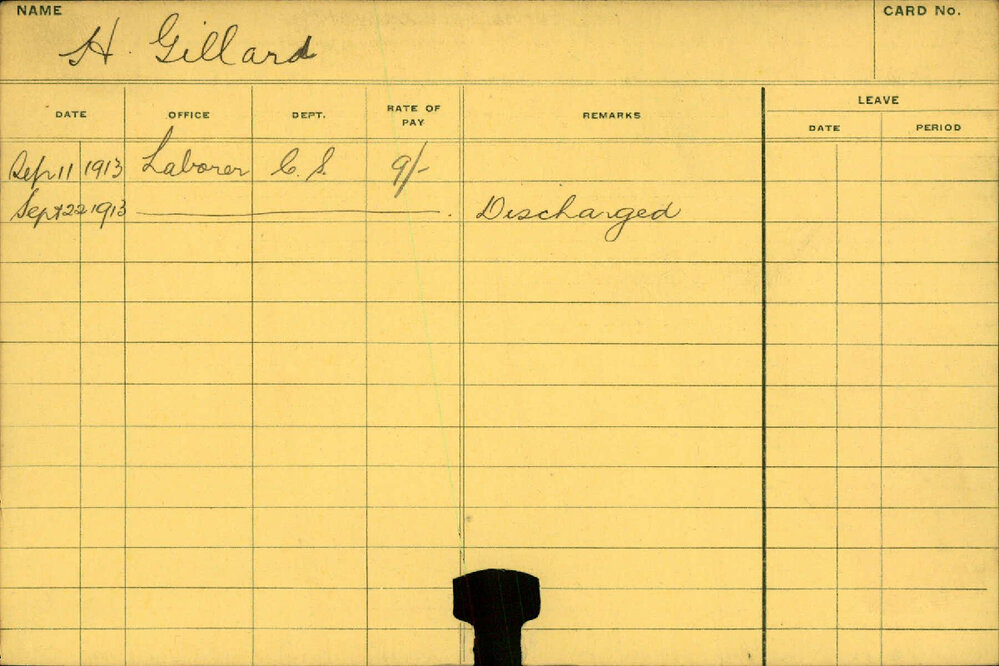 NAME
H. Gillard
CARD No.
DATE OFFICE DEPT. RATE OF PAY REMARKS LEAVE
DATE PERIOD
Sep 11 1913 Laborer C. S. 9/-
Sept 22 1913 Discharged